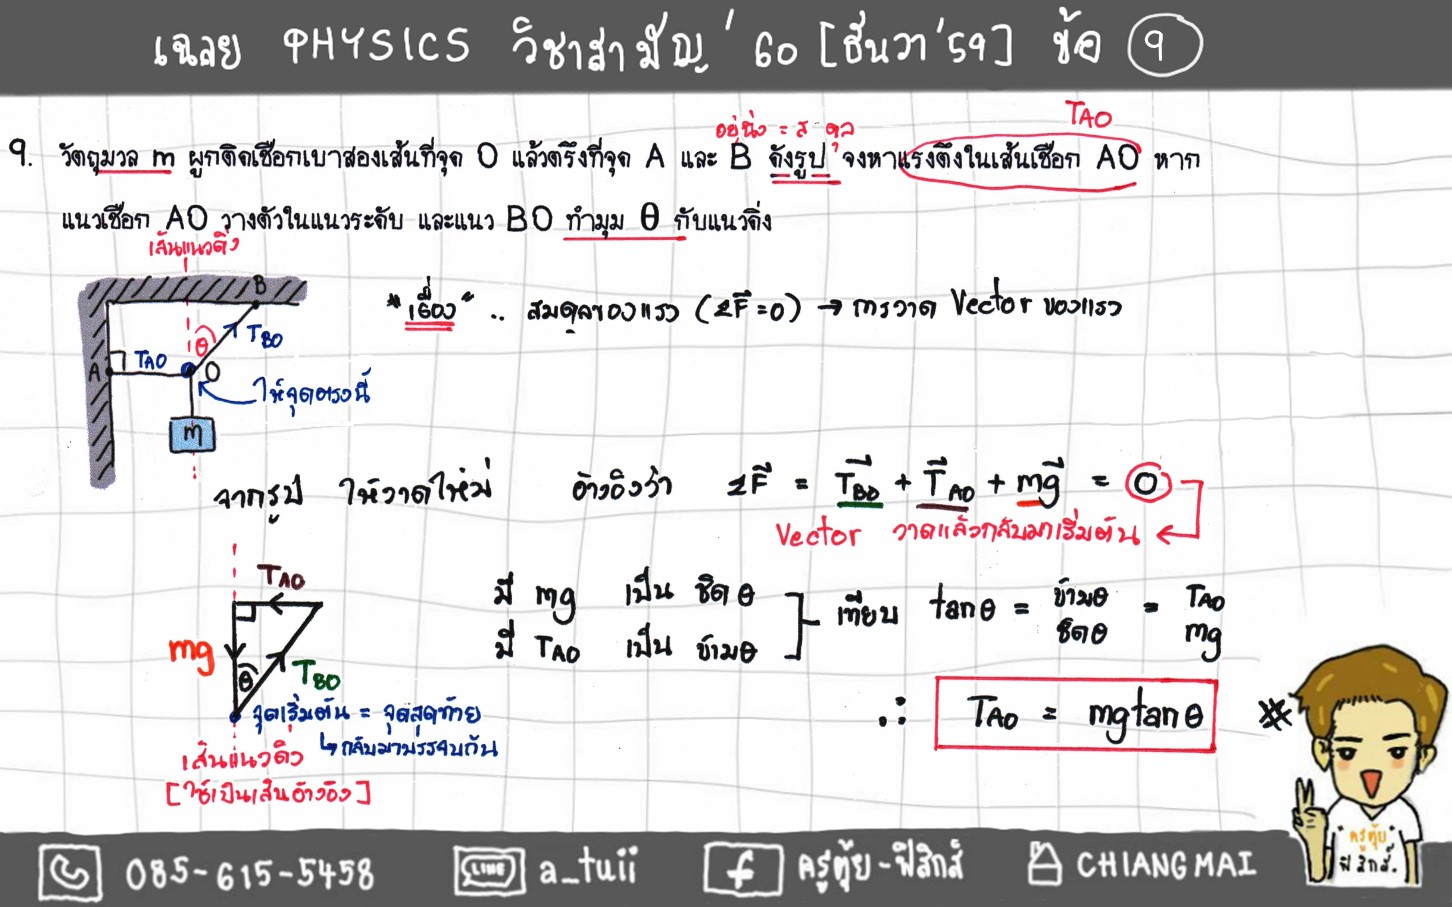 เฉลย PHYSICS วิชาสามัญ'60 [ธันวา'59] ข้อ 9
TAO
อยู่นิ่ง = สมดุล
9. วัตถุมวล m ผูกติดเชือกเบาสองเส้นที่จุด O แล้วตรึงที่จุด A และ B ดังรูป จงหาแรงดึงในเส้นเชือก AO หาก
แนวเชือก AO วางตัวในแนวระดับ และแนว BO ทำมุม θ กับแนวดิ่ง
เส้นแนวดิ่ง
B
"เรื่อง" .. สมดุลของแรง (ΣF=0) → การวาด Vector ของแรง
θ TBO
A TAO O
ให้จุดตรงนี้
m
จากรูป ให้วาดใหม่ อ้างอิงว่า ΣF = TBO + TAO + mg = 0
Vector วาดแล้วกลับมาเริ่มต้น
TAO
มี mg เป็น ชิดθ
มี TAO เป็น ข้ามθ
เทียบ tanθ = ข้ามθ/ชิดθ = TAO/mg
mg
θ TBO
∴ TAO = mgtanθ
จุดเริ่มต้น = จุดสุดท้าย
↳ กลับมาบรรจบกัน
เส้นแนวดิ่ง
[ใช้เป็นเส้นอ้างอิง]
ครูตุ้ย
ฟิสิกส์.
085-615-5458 LINE a_tuii f ครูตุ้ย-ฟิสิกส์ CHIANGMAI